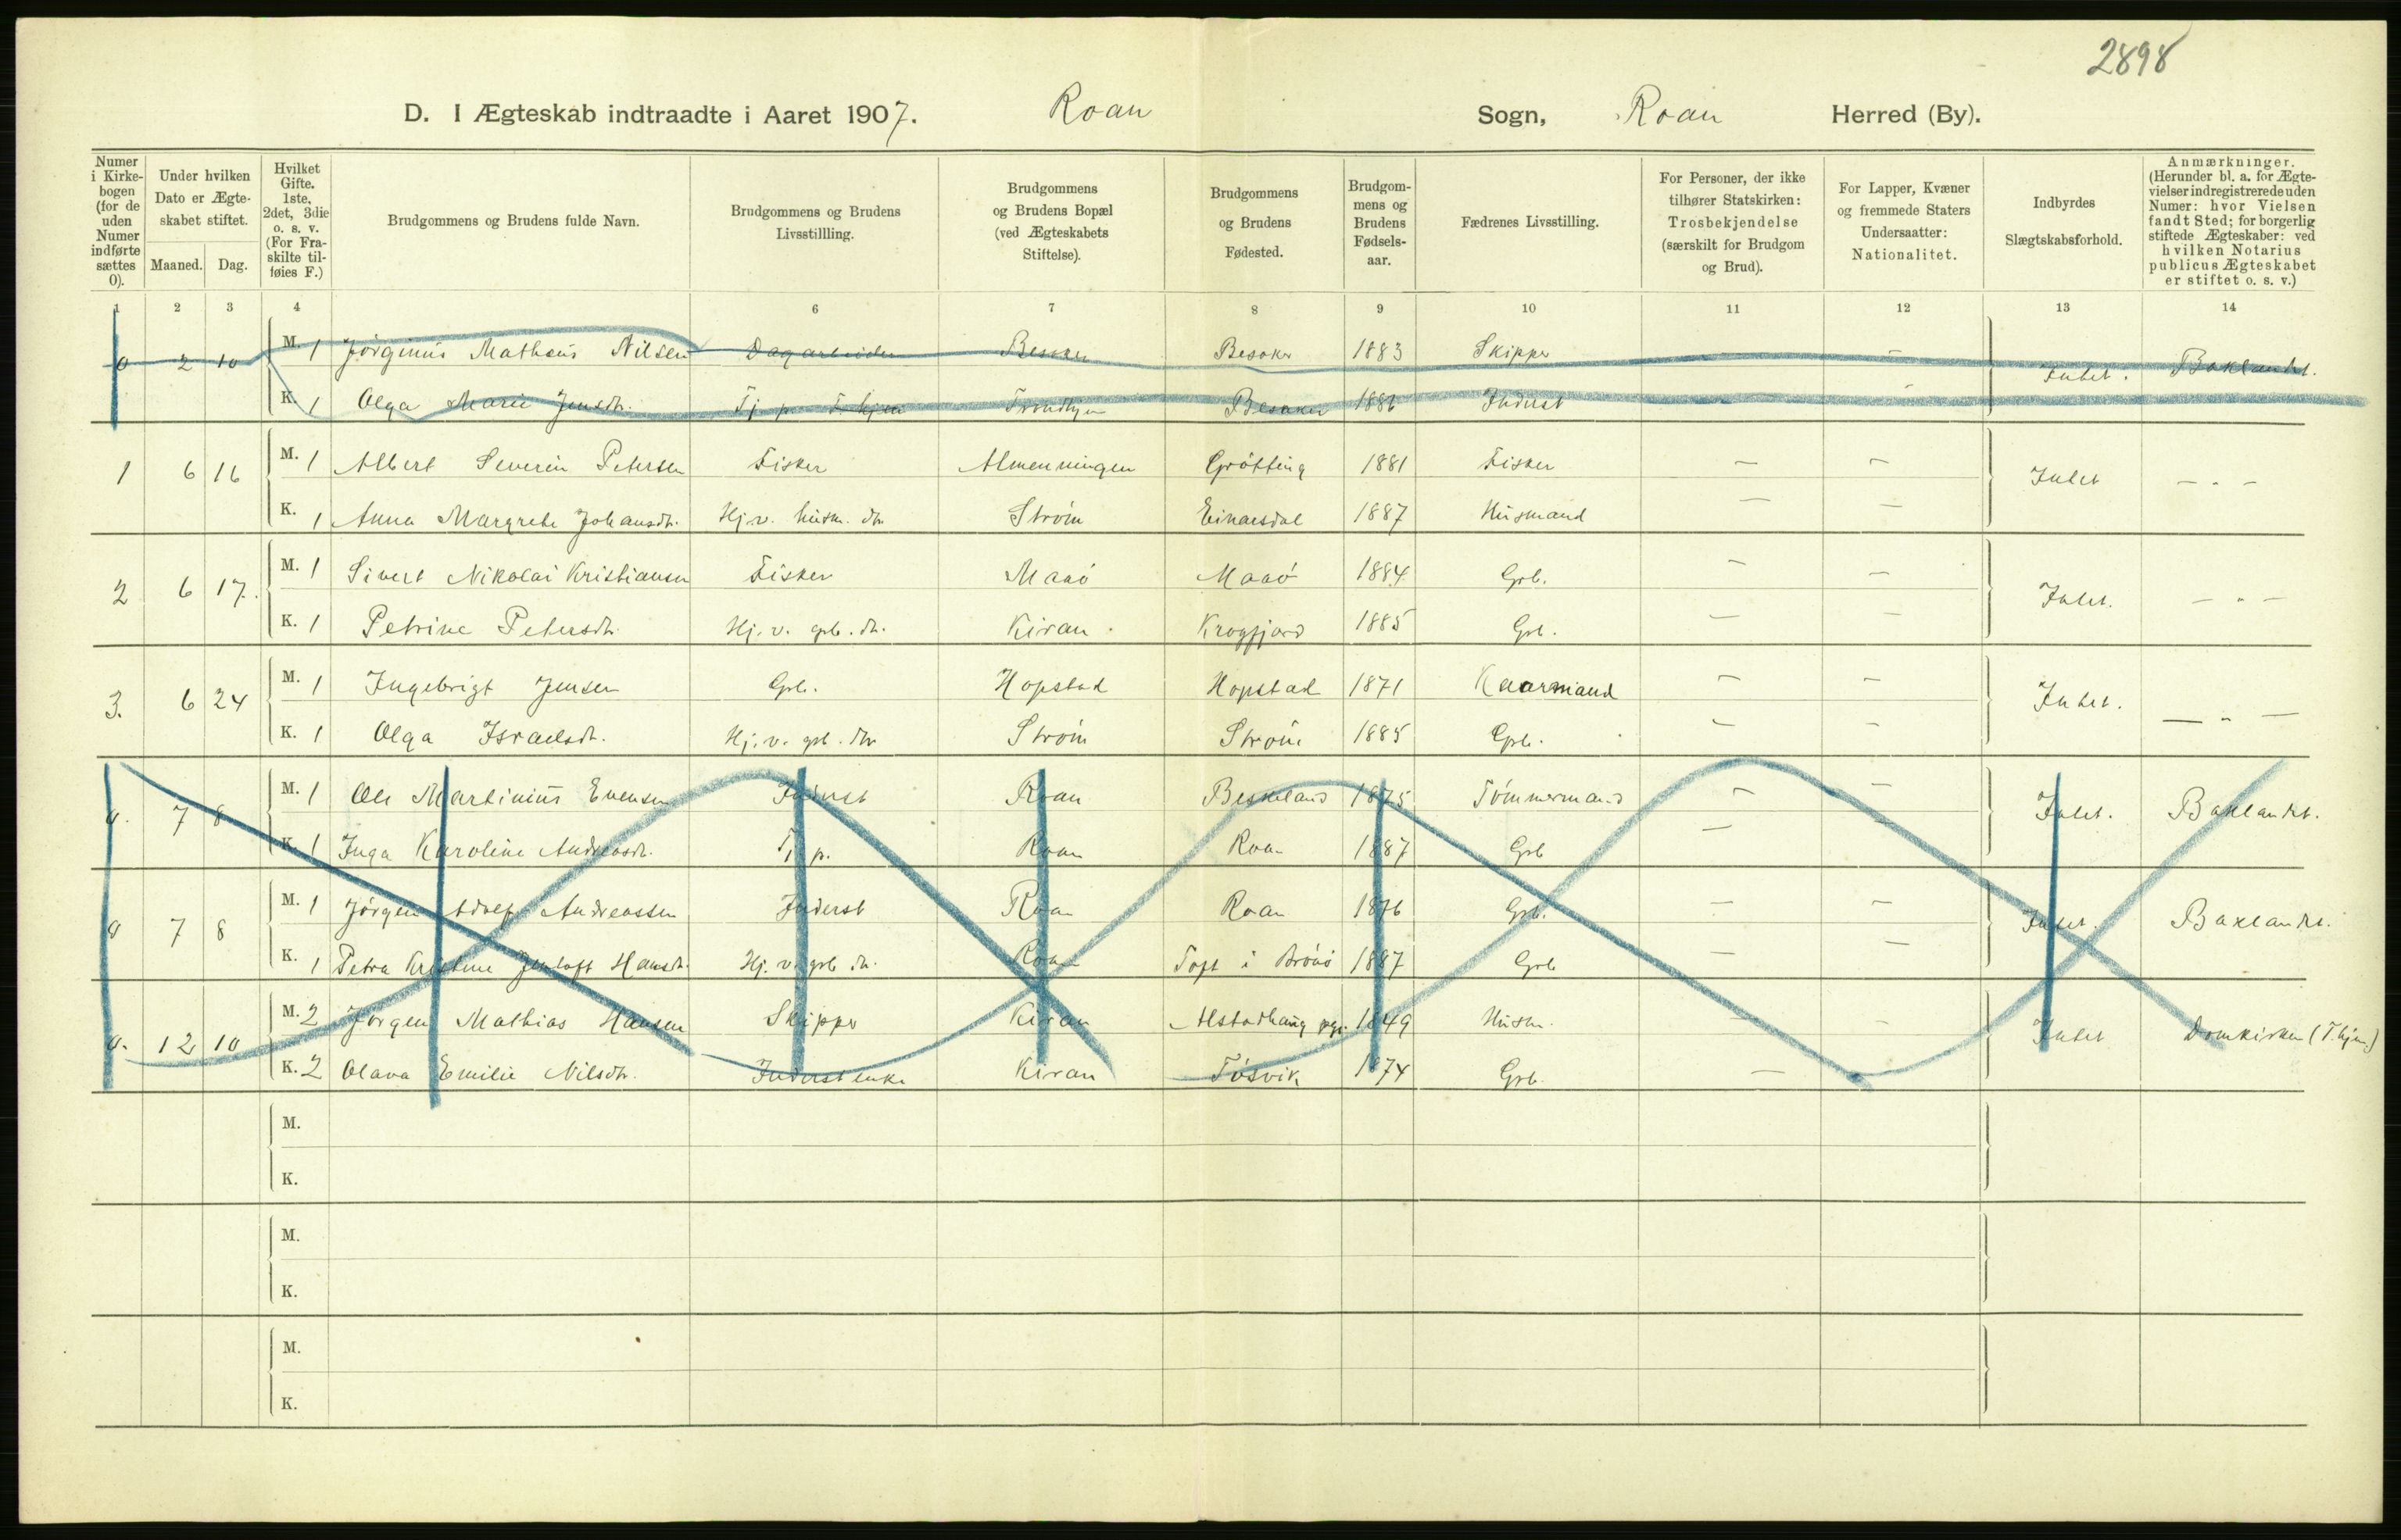 2898
D. I Ægteskab indtraadte i Aaret 1907. Roan Sogn, Roan Herred (By).
Numer i Kirke-bogen (for de uden Numer indførte sættes 0).
Under hvilken Dato er Ægte-skabet stiftet.
Maaned. Dag.
Hvilket Gifte. 1ste, 2det, 3die o. s. v. (For Fra-skilte til-føies F.)
Brudgommens og Brudens fulde Navn.
Brudgommens og Brudens Livsstillling.
Brudgommens og Brudens Bopæl (ved Ægteskabets Stiftelse).
Brudgommens og Brudens Fødested.
Brudgom-mens og Brudens Fødsels-aar.
Fædrenes Livsstilling.
For Personer, der ikke tilhører Statskirken: Trosbekjendelse (særskilt for Brudgom og Brud).
For Lapper, Kvæner og fremmede Staters Undersaatter: Nationalitet.
Indbyrdes Slægtskabsforhold.
Anmærkninger. (Herunder bl. a. for Ægte-vielser indregistrerede uden Numer: hvor Vielsen fandt Sted; for borgerlig stiftede Ægteskaber: ved hvilken Notarius publicus Ægteskabet er stiftet o. s. v.)
1 2 3 4 6 7 8 9 10 11 12 13 14
0 2 10 M. 1 Jörginus Matheus Nilsen Dagarbeider Besaker Besaker 1883 Skipper — Intet. Baklandet.
K. 1 Olga Marie Jensdtr. Tj. p. T.hjem Trondhjem Besaker 1886 Inderst
1 6 16 M. 1 Albert Severin Petersen Fisker Almenningen Grötting 1881 Fisker — — Intet — " —
K. 1 Anna Margrete Johansdtr. Hj. v. husm. dtr. Ström Einarsdal 1887 Husmand — —
2 6 17. M. 1 Sivert Nikolai Kristiansen Fisker Maaö Maaö 1884 Grb. — — Intet. — " —
K. 1 Petrine Petersdtr. Hj. v. grb. dtr. Kiran. Krogfjord 1885 Grb. — —
3. 6 24 M. 1 Ingebrigt Jensen Grb. Hopstad Hopstad 1871 Kaarmand — — Intet. — " —
K. 1 Olga Israelsdtr. Hj. v. grb. dtr. Ström Ström 1885 Grb. — —
0. 7 8 M. 1 Ole Martinius Evensen Inderst Roan Beskeland 1875 Tömmermand — — Intet. Baklandet.
K. 1 Inga Karoline Andreasdtr. Tj. p. Roan Roan 1887 Grb — —
0 7 8 M. 1 Jörgen Adolf Andreassen Inderst Roan Roan 1876 Grb. — — Intet. Baklandet.
K. 1 Petra Kristine Hansdtr. Hj. v. grb. dtr. Roan Toft i Brönö 1887 Grb — —
0. 12 10 M. 2 Jörgen Mathias Hansen Skipper Kiran Alstadhaug pgj. 1849 Husm. — Intet Domkirken (T.hjem)
K. 2 Olava Emilie Nilsdtr. Inderstenke Kiran Tösvik 1874 Grb. —
M.
K.
M.
K.
M.
K.